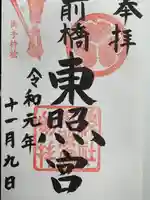 奉拝
前橋
東照宮
令和元年
十一月九日